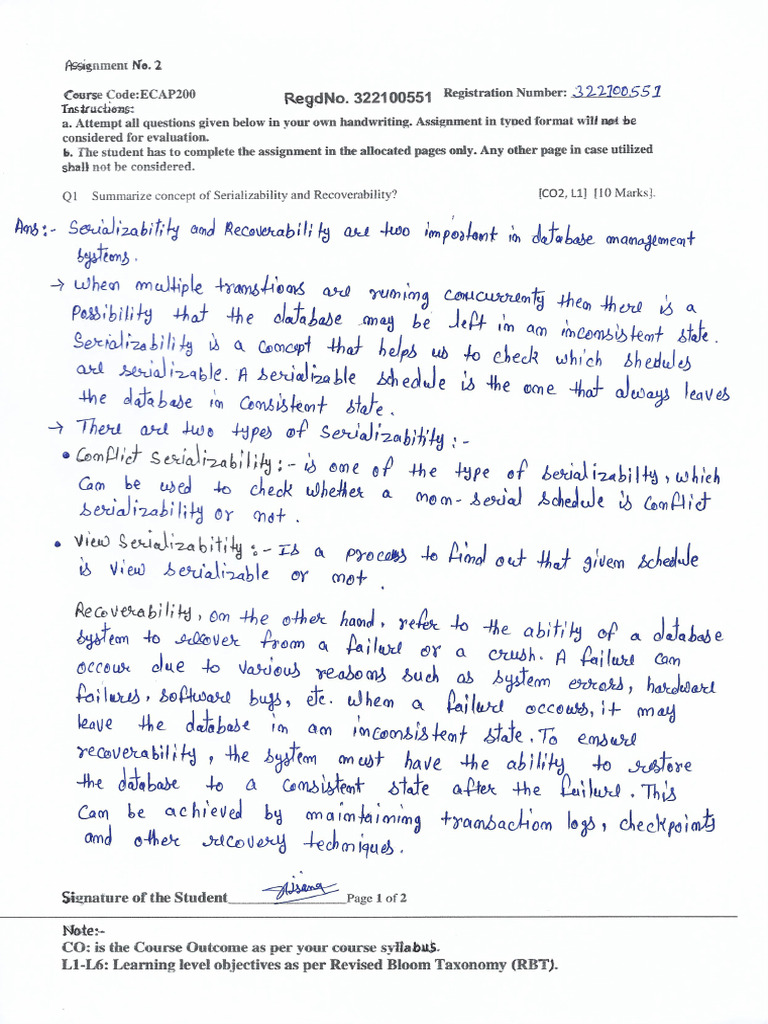 Assignment No. 2
Course Code:ECAP200 RegdNo. 322100551 Registration Number: 322100551
Instructions:
a. Attempt all questions given below in your own handwriting. Assignment in typed format will not be
considered for evaluation.
b. The student has to complete the assignment in the allocated pages only. Any other page in case utilized
shall not be considered.
Q1 Summarize concept of Serializability and Recoverability? [CO2, L1] [10 Marks].
Ans:- Serializabitity and Recoverability are two important in database management
systems.
→ When multiple transtions are runing concurrenty then there is a
Possibility that the database may be left in an inconsistent state.
Serializability is a concept that helps us to check which shedules
are serializable. A serializable schedule is the one that always leaves
the database in consistent state.
→ There are two types of serializabitity:-
• Conflict Serializability:- is one of the type of serializabilty, which
can be used to check whether a non-serial schedule is conflict
serializability or not.
• View Serializabitity:- Is a process to find out that given schedule
is view serializable or not.
Recoverability, on the other hand, refer to the abitity of a database
system to recover from a failure or a crush. A failure can
occour due to various reasons such as system errors, hardware
failures, software bugs, etc. when a failure occours, it may
leave the database in an inconsistent state. To ensure
recoverability, the system must have the ability to restore
the database to a consistent state after the failure. This
can be achieved by maintaining transaction logs, checkpoints
and other recovery techniques.
Signature of the Student Page 1 of 2
Note:-
CO: is the Course Outcome as per your course syllabus.
L1-L6: Learning level objectives as per Revised Bloom Taxonomy (RBT).